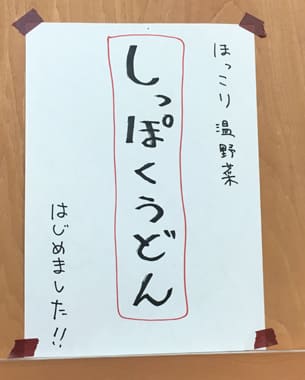 ほっこり 温野菜
しっぽくうどん
はじめました!!